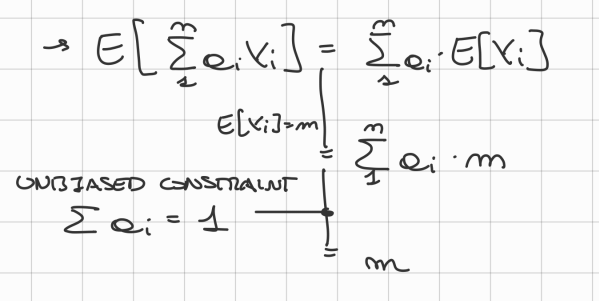 → E[ Σ₁ⁿ aᵢ Xᵢ ] = Σ₁ⁿ aᵢ · E[Xᵢ]
E[Xᵢ]=m
= Σ₁ⁿ aᵢ · m
UNBIASED CONSTRAINT
Σ aᵢ = 1
= m